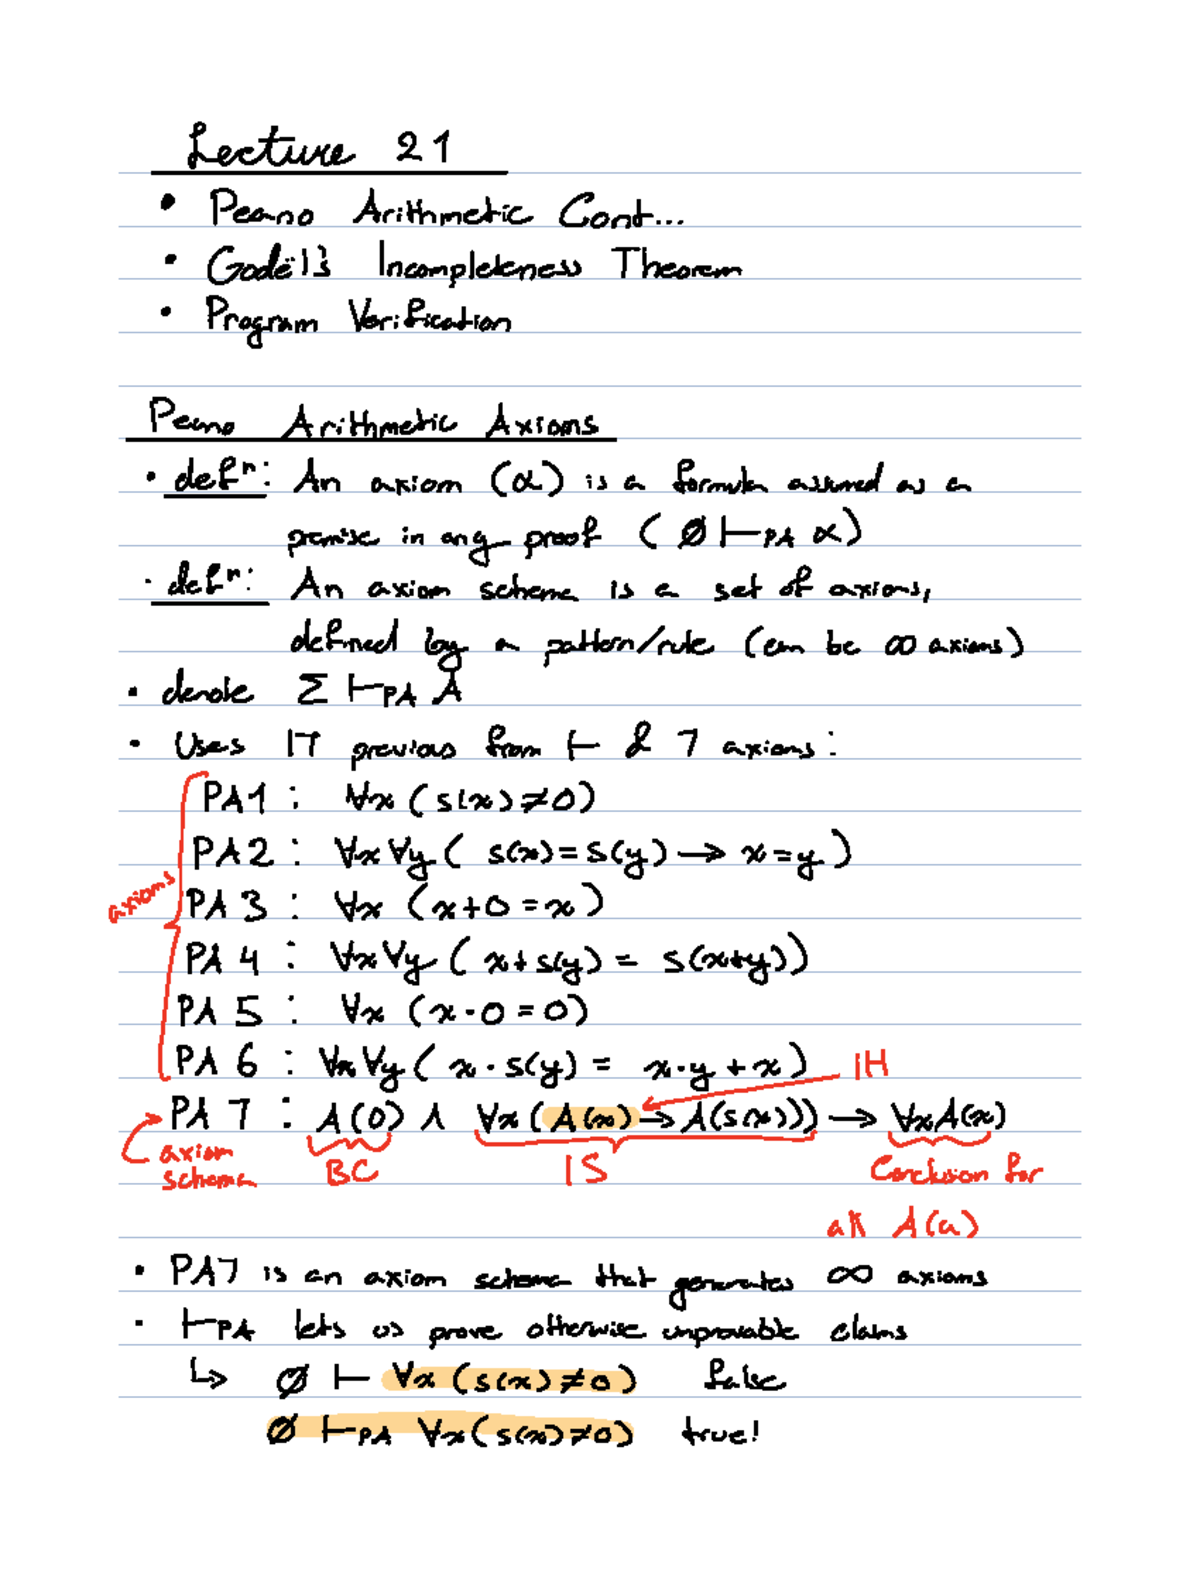 Lecture 21
• Peano Arithmetic Cont...
• Godël's Incompleteness Theorem
• Program Verification
Peano Arithmetic Axioms
• defⁿ: An axiom (α) is a formula assumed as a
premise in any proof (∅ ⊢PA α)
• defⁿ: An axiom scheme is a set of axioms,
defined by a pattern/rule (can be ∞ axioms)
• denote Σ ⊢PA A
• Uses 17 previous from ⊢ & 7 axioms:
axioms
PA1: ∀x (s(x)≠0)
PA2: ∀x∀y( s(x)=s(y) → x=y)
PA 3: ∀x (x+0=x)
PA 4: ∀x∀y ( x+s(y) = s(x+y))
PA 5: ∀x (x·0=0)
PA 6: ∀x∀y( x·s(y) = x·y+x) IH
PA 7: A(0) ∧ ∀x(A(x)→A(s(x))) → ∀xA(x)
axiom schema BC IS Conclusion for
all A(a)
• PA7 is an axiom schema that generates ∞ axioms
• ⊢PA lets us prove otherwise unprovable claims
↳ ∅ ⊢ ∀x (s(x)≠0) false
∅ ⊢PA ∀x(s(x)≠0) true!